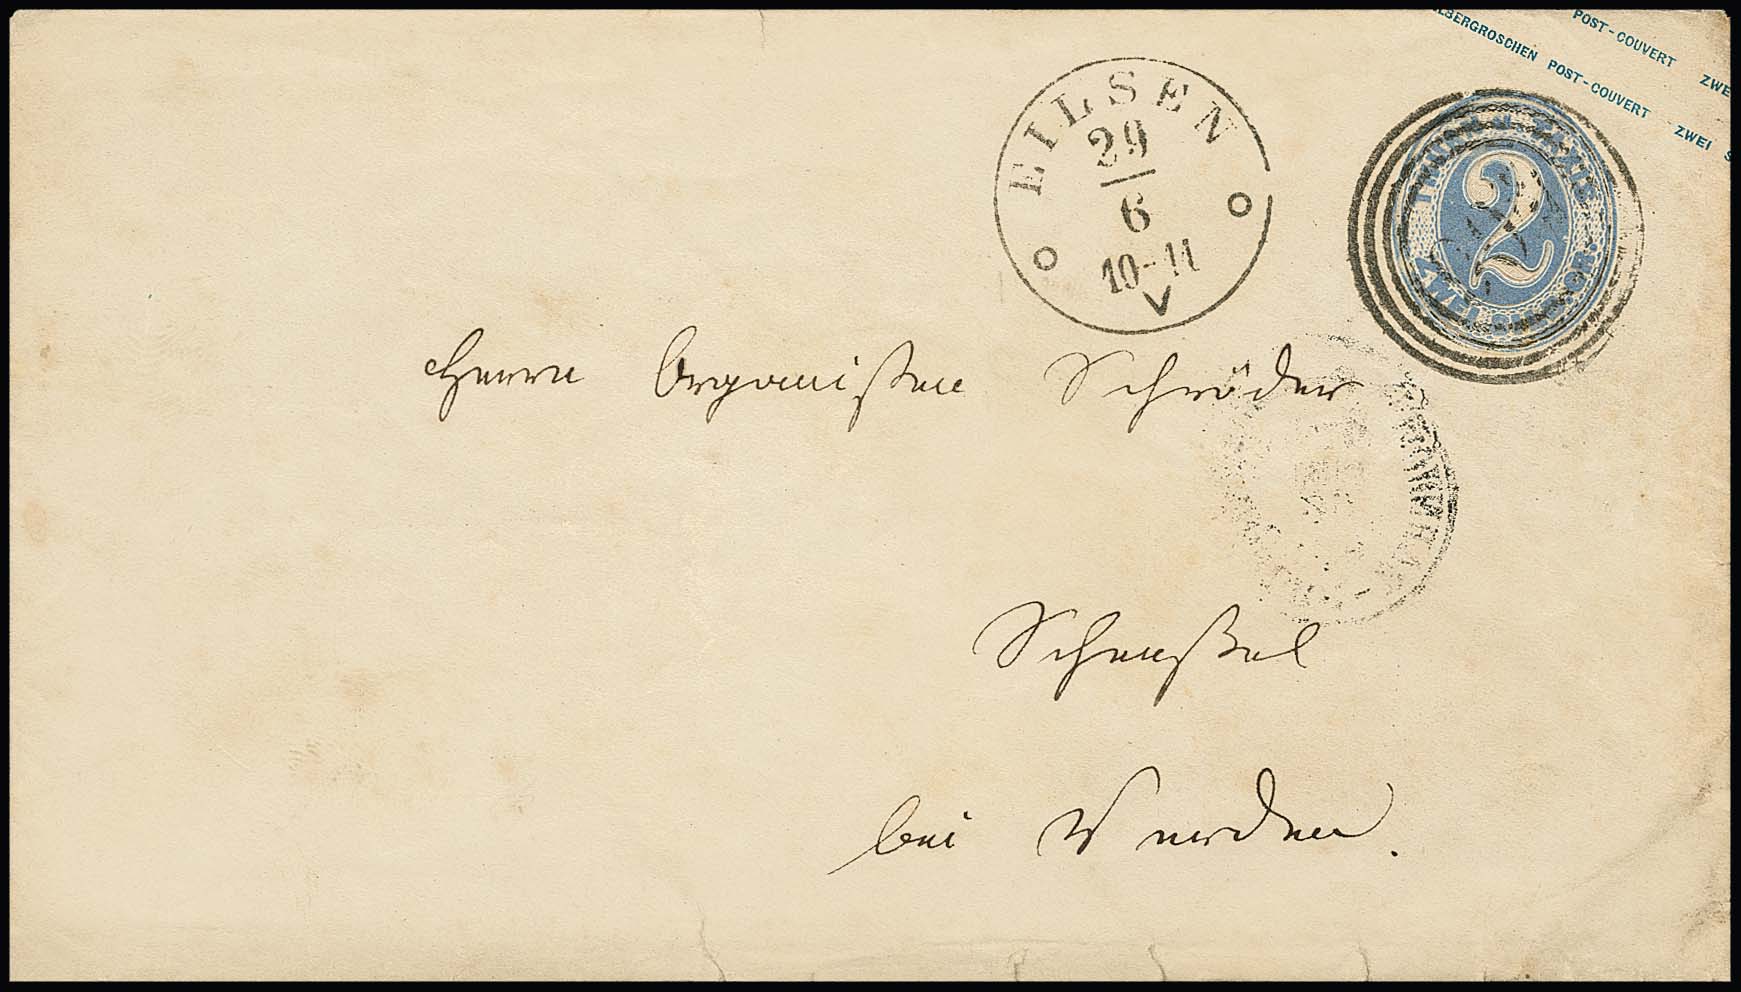 LBERGROSCHEN POST-COUVERT ZWEI S
POST-COUVERT ZWE
EILSEN
29
6
10-11
V
THURN u. TAXIS
2
ZWEI SILB. GR.
Herrn Organisten Schröder
Scheeßel
bei Verden.